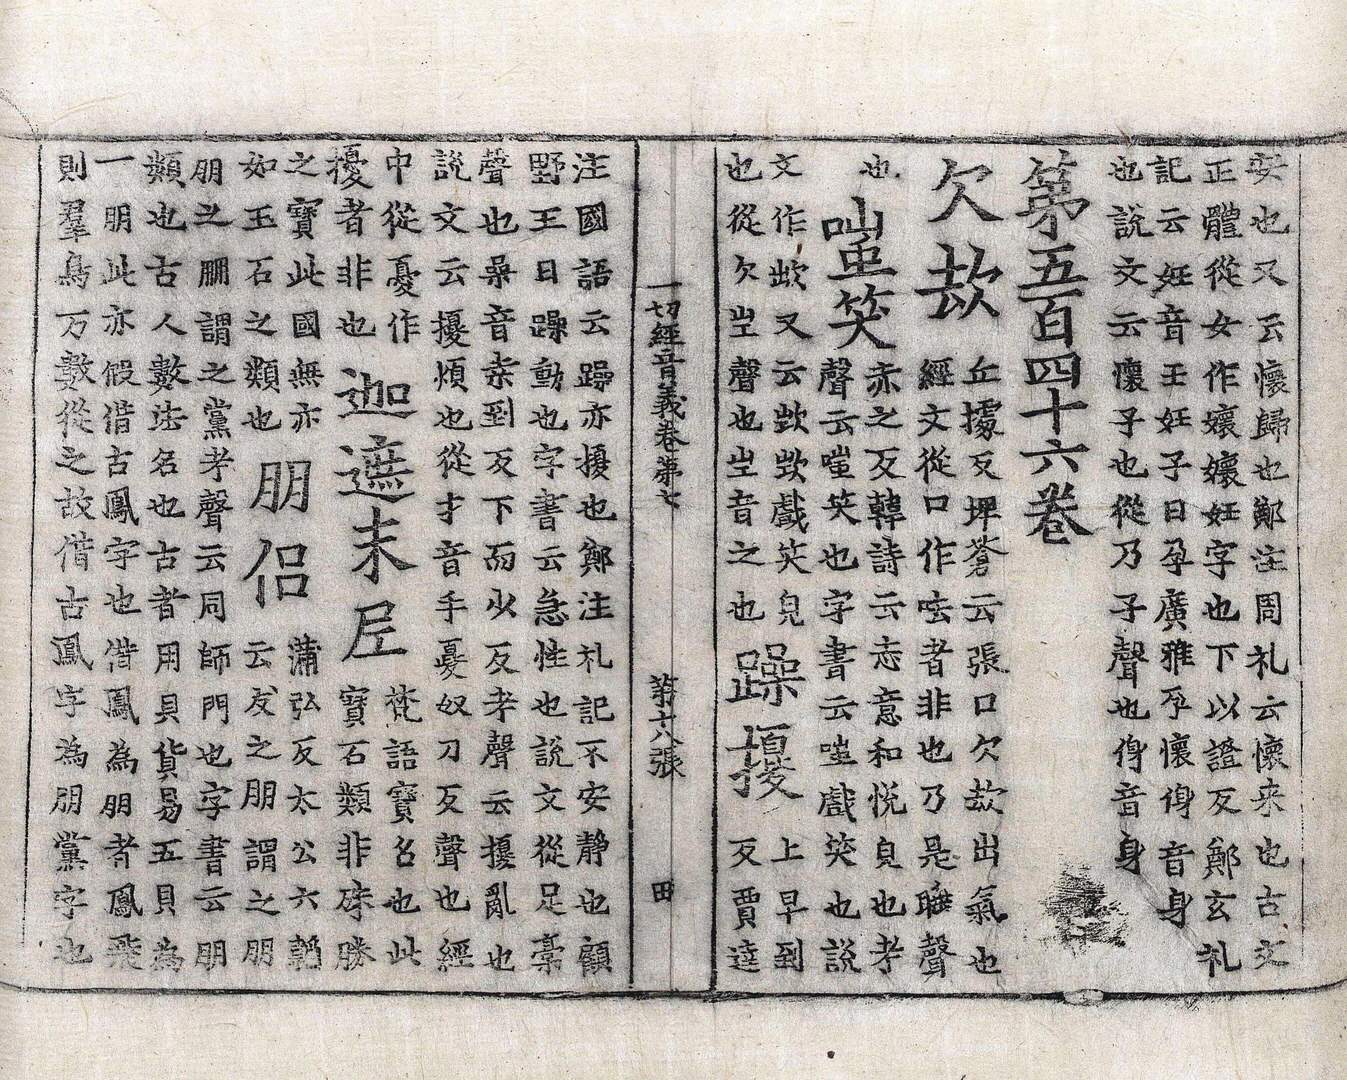 安也又云懷歸也鄭注周礼云懷来也古文
正體從女作孃孃妊字也下以證反鄭玄礼
記云妊音壬妊子曰孕廣雅孕懷身音身
也說文云懷子也從乃子聲也身音身
第五百四十六卷
欠㰦
丘據反埤蒼云張口欠㰦出氣也
經文從口作呿者非也乃是聲
嗤笑
赤之反韓詩云志意和悅皃也考
聲云嗤笑也字書云嗤戲笑也說
文作㰞又云㰞㰞戲笑皃
也從欠㞢聲也㞢音之也
躁擾
上早到
反賈逵
一切經音義卷第七
第十八張
田
注國語云躁亦擾也鄭注札記不安静也顧
野王曰躁動也字書云急性也說文從足喿
聲也喿音桒到反下而沼反考聲云擾亂也
說文云擾煩也從才音手憂奴刀反聲也經
中從憂作
擾者非也
迦遮末尼
梵語寶名也此
寶石類非殊勝
之寶此國無亦
如玉石之類也
朋侣
蒲弘反太公六韜
云友之朋謂之朋
朋之朋謂之黨考聲云同師門也字書云朋
類也古人數法名也古者用貝貨易五貝為
一朋此亦假借古鳳字也借鳳為朋者鳳飛
則羣鳥万數從之故借古鳳字為朋黨字也